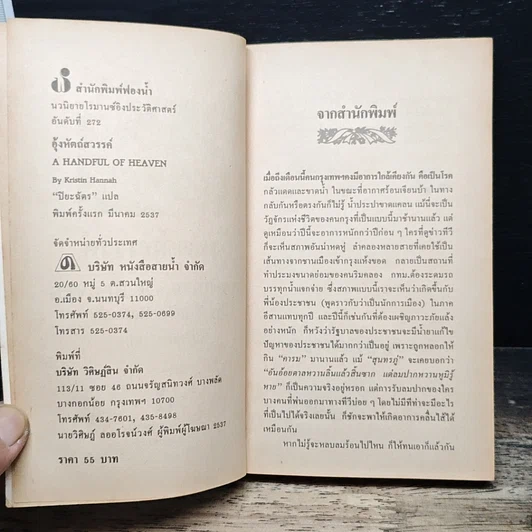 สำนักพิมพ์ฟองน้ำ
นวนิยายโรมานซ์อิงประวัติศาสตร์
อันดับที่ 272
อุ้งหัตถ์สวรรค์
A HANDFUL OF HEAVEN
By Kristin Hannah
"ปิยะฉัตร" แปล
พิมพ์ครั้งแรก มีนาคม 2537
จัดจำหน่ายทั่วประเทศ
บริษัท หนังสือสายน้ำ จำกัด
20/60 หมู่ 5 ต.สวนใหญ่
อ.เมือง จ.นนทบุรี 11000
โทรศัพท์ 525-0374, 525-0699
โทรสาร 525-0374
พิมพ์ที่
บริษัท วิศิษฎ์สิน จำกัด
113/11 ซอย 46 ถนนจรัญสนิทวงศ์ บางพลัด
บางกอกน้อย กรุงเทพฯ 10700
โทรศัพท์ 434-7601, 435-8498
นายวิศิษฎ์ ลออโรจน์วงศ์ ผู้พิมพ์ผู้โฆษณา 2537
ราคา 55 บาท
จากสำนักพิมพ์
เมื่อถึงเดือนนี้คนกรุงเทพฯคงมีอาการใกล้เคียงกัน คือเป็นโรค
กลัวแดดและขาดน้ำ ในขณะที่อากาศร้อนเจียนบ้า ในทาง
กลับกันหรือตรงกันก็ไม่รู้ น้ำประปาขาดแคลน แม้นี่จะเป็น
วัฏจักรแห่งชีวิตของคนกรุงที่เป็นแบบนี้มาช้านานแล้ว แต่
ดูเหมือนว่าปีนี้จะอาการหนักกว่าปีก่อน ๆ ใครที่ดูข่าวทีวี
ก็จะเห็นสภาพอันน่าหดหู่ ลำคลองหลายสายที่เคยใช้เป็น
เส้นทางจากชานเมืองเข้ากรุงแห้งขอด กลายเป็นสถานที่
ทำประมงขนาดย่อมของคนริมคลอง กทม.ต้องระดมรถ
บรรทุกน้ำแจกจ่าย ซึ่งสภาพแบบนี้เราจะเห็นว่าเกิดขึ้นกับ
พี่น้องประชาชน (พูดราวกับว่าเป็นนักการเมือง) ในภาค
อีสานแทบทุกปี และปีนี้ก็เช่นกันที่ต้องเผชิญภาวะภัยแล้ง
อย่างหนัก ก็หวังว่ารัฐบาลของประชาชนจะมีน้ำยาแก้ไข
ปัญหาของประชาชนได้มากกว่าเป็นอยู่ เพราะถูกหลอกให้
กิน "คารม" มานานแล้ว แม้ "สุนทรภู่" จะเคยบอกว่า
"อันอ้อยตาลหวานลิ้นแล้วสิ้นซาก แต่ลมปากหวานหูมิรู้
หาย" ก็เป็นความจริงอยู่หรอก แต่การรับลมปากของใคร
บางคนที่พ่นออกมาทางทีวีบ่อย ๆ โดยไม่มีทีท่าว่าจะมีอะไร
ที่เป็นไปได้จริงเลยนั้น ก็ชักจะพาให้เกิดอาการคลื่นไส้ได้
เหมือนกัน
หากไม่รู้จะหลบลมร้อนไปไหน ก็ให้ทนเอาก็แล้วกัน